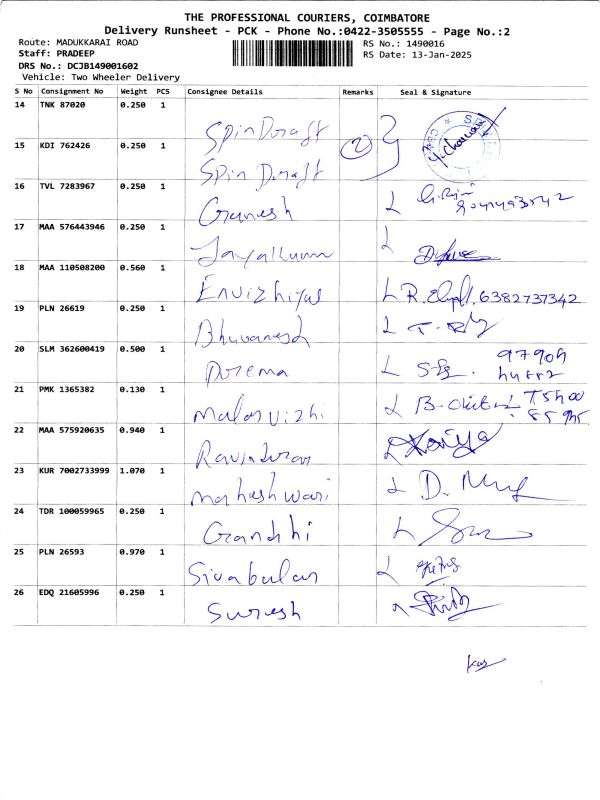 THE PROFESSIONAL COURIERS, COIMBATORE
Delivery Runsheet - PCK - Phone No.:0422-3505555 - Page No.:2
Route: MADUKKARAI ROAD RS No.: 1490016
Staff: PRADEEP RS Date: 13-Jan-2025
DRS No.: DCJB149001602
Vehicle: Two Wheeler Delivery
S No Consignment No Weight PCS Consignee Details Remarks Seal & Signature
14 TNK 87020 0.250 1 Spin Draft
15 KDI 762426 0.250 1 Spin Draft 2
16 TVL 7283967 0.250 1 Ganesh
17 MAA 576443946 0.250 1 Jayakumar
18 MAA 110508200 0.560 1 6382737342
19 PLN 26619 0.250 1 Bhuvanesh
20 SLM 362600419 0.500 1
21 PMK 1365382 0.130 1 Malarvizhi
22 MAA 575920635 0.940 1
23 KUR 7002733999 1.070 1 maheshwari
24 TDR 100059965 0.250 1 Gandhi
25 PLN 26593 0.970 1 Sivabalan
26 EDQ 21605996 0.250 1 Suresh